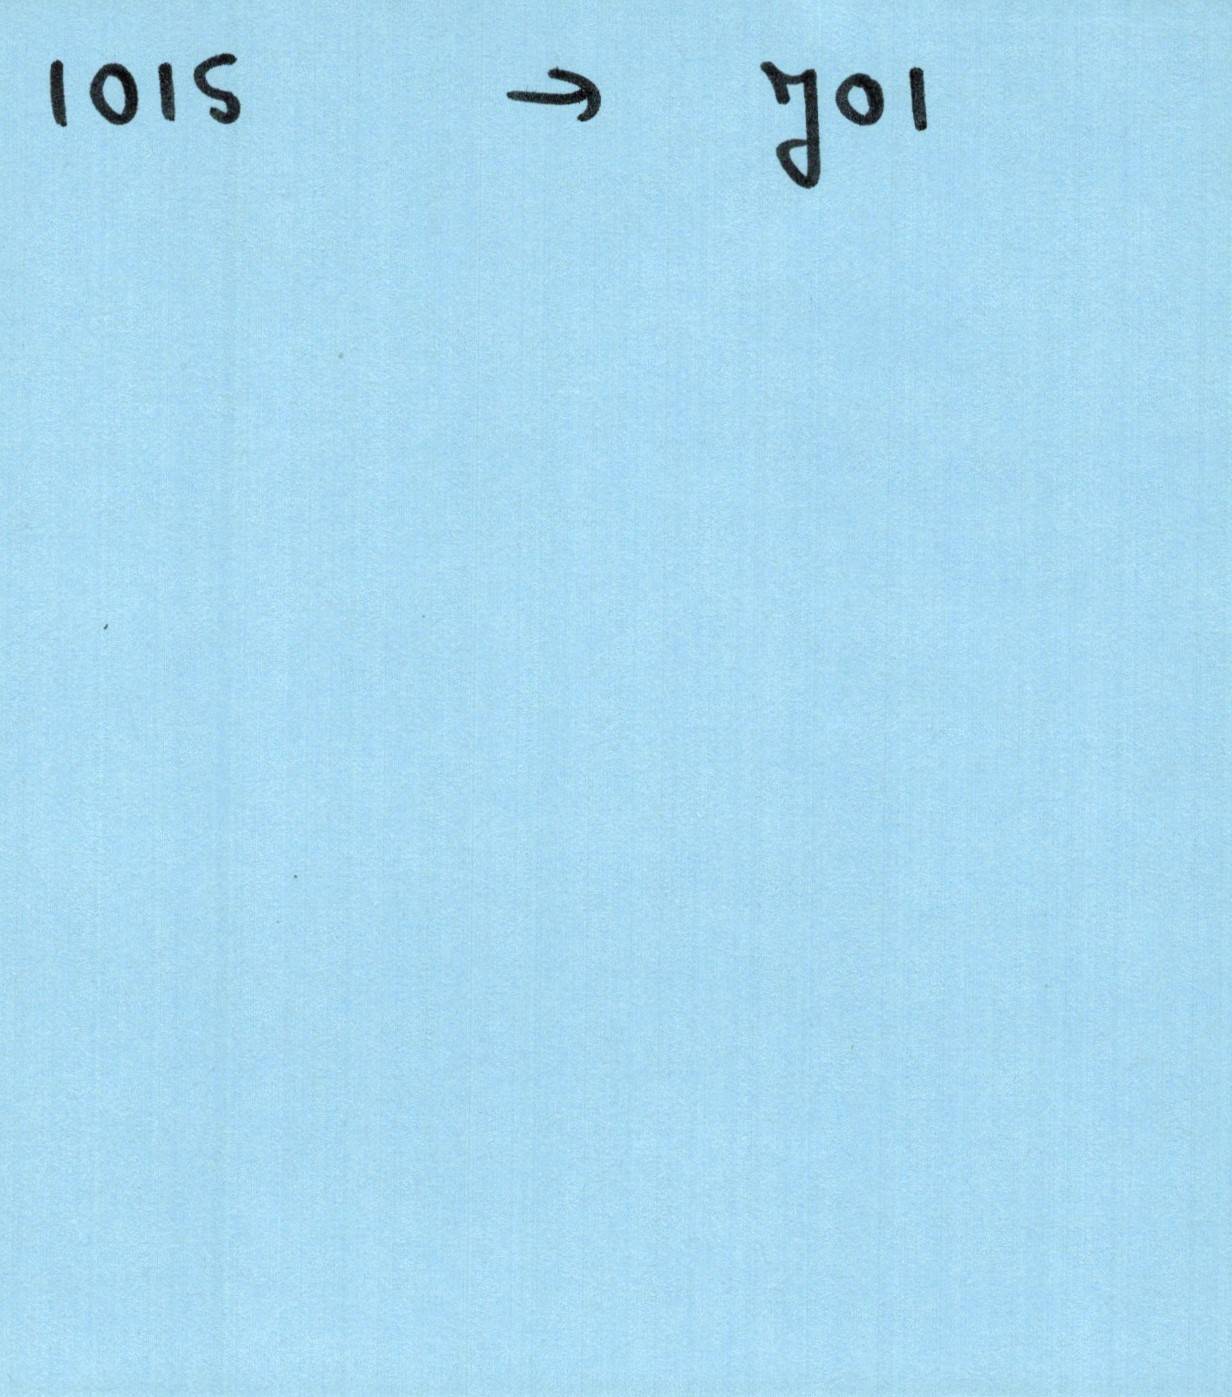 1015 → y01